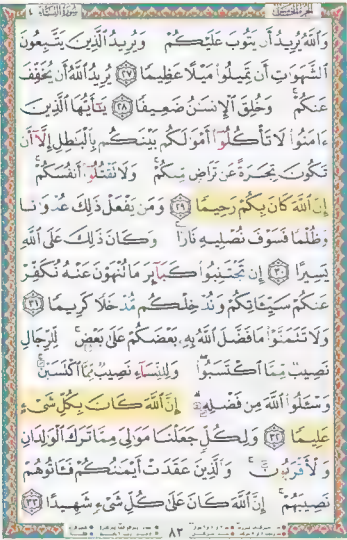 سورة النساء ٤
وَٱللَّهُ يُرِيدُ أَن يَتُوبَ عَلَيْكُمْ وَيُرِيدُ ٱلَّذِينَ يَتَّبِعُونَ
ٱلشَّهَوَٰتِ أَن تَمِيلُوا۟ مَيْلًا عَظِيمًا ٢٧ يُرِيدُ ٱللَّهُ أَن يُخَفِّفَ
عَنكُمْ وَخُلِقَ ٱلْإِنسَٰنُ ضَعِيفًا ٢٨ يَٰٓأَيُّهَا ٱلَّذِينَ
ءَامَنُوا۟ لَا تَأْكُلُوٓا۟ أَمْوَٰلَكُم بَيْنَكُم بِٱلْبَٰطِلِ إِلَّآ أَن
تَكُونَ تِجَٰرَةً عَن تَرَاضٍ مِّنكُمْ وَلَا تَقْتُلُوٓا۟ أَنفُسَكُمْ
إِنَّ ٱللَّهَ كَانَ بِكُمْ رَحِيمًا ٢٩ وَمَن يَفْعَلْ ذَٰلِكَ عُدْوَٰنًا
وَظُلْمًا فَسَوْفَ نُصْلِيهِ نَارًا وَكَانَ ذَٰلِكَ عَلَى ٱللَّهِ
يَسِيرًا ٣٠ إِن تَجْتَنِبُوا۟ كَبَآئِرَ مَا تُنْهَوْنَ عَنْهُ نُكَفِّرْ
عَنكُمْ سَيِّـَٔاتِكُمْ وَنُدْخِلْكُم مُّدْخَلًا كَرِيمًا ٣١
وَلَا تَتَمَنَّوْا۟ مَا فَضَّلَ ٱللَّهُ بِهِۦ بَعْضَكُمْ عَلَىٰ بَعْضٍ لِّلرِّجَالِ
نَصِيبٌ مِّمَّا ٱكْتَسَبُوا۟ وَلِلنِّسَآءِ نَصِيبٌ مِّمَّا ٱكْتَسَبْنَ
وَسْـَٔلُوا۟ ٱللَّهَ مِن فَضْلِهِۦٓ إِنَّ ٱللَّهَ كَانَ بِكُلِّ شَىْءٍ
عَلِيمًا ٣٢ وَلِكُلٍّ جَعَلْنَا مَوَٰلِىَ مِمَّا تَرَكَ ٱلْوَٰلِدَانِ
وَٱلْأَقْرَبُونَ وَٱلَّذِينَ عَقَدَتْ أَيْمَٰنُكُمْ فَـَٔاتُوهُمْ
نَصِيبَهُمْ إِنَّ ٱللَّهَ كَانَ عَلَىٰ كُلِّ شَىْءٍ شَهِيدًا ٣٣
٨٣